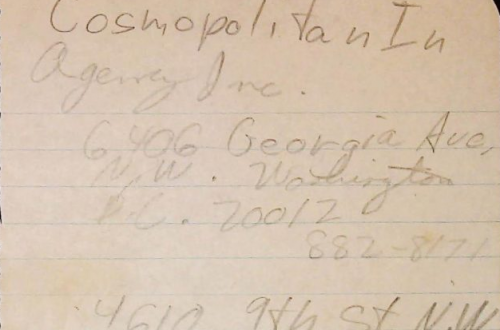 Cosmopolitan In
Agency Inc.
6406 Georgia Ave,
N.W. Washington
D.C. 20012
882-8171
4610 9th St N.W